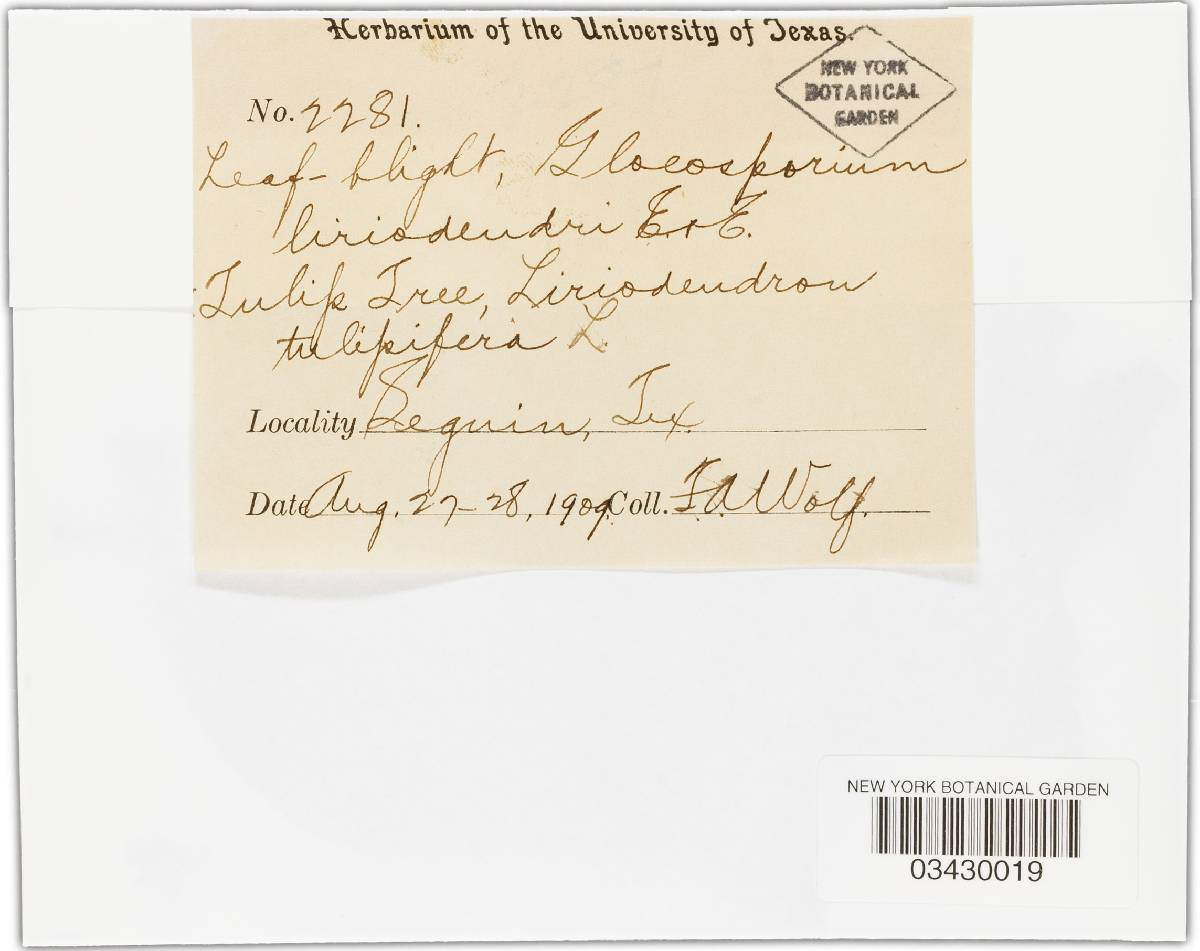 Herbarium of the University of Texas.
NEW YORK
BOTANICAL
GARDEN
No. 2281.
Leaf-blight, Gloeosporium
liriodendri E. & E.
Tulip Tree, Liriodendron
tulipifera L.
Locality Seguin, Tex.
Date Aug. 27-28, 1909. Coll. F. A. Wolf.
NEW YORK BOTANICAL GARDEN
03430019